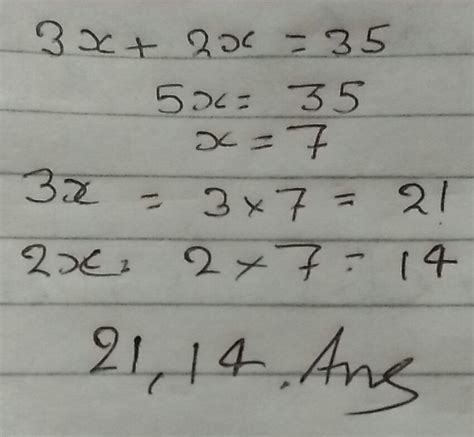 3x + 2x = 35
5x = 35
x = 7
3x = 3 × 7 = 21
2x = 2 × 7 = 14
21, 14. Ans